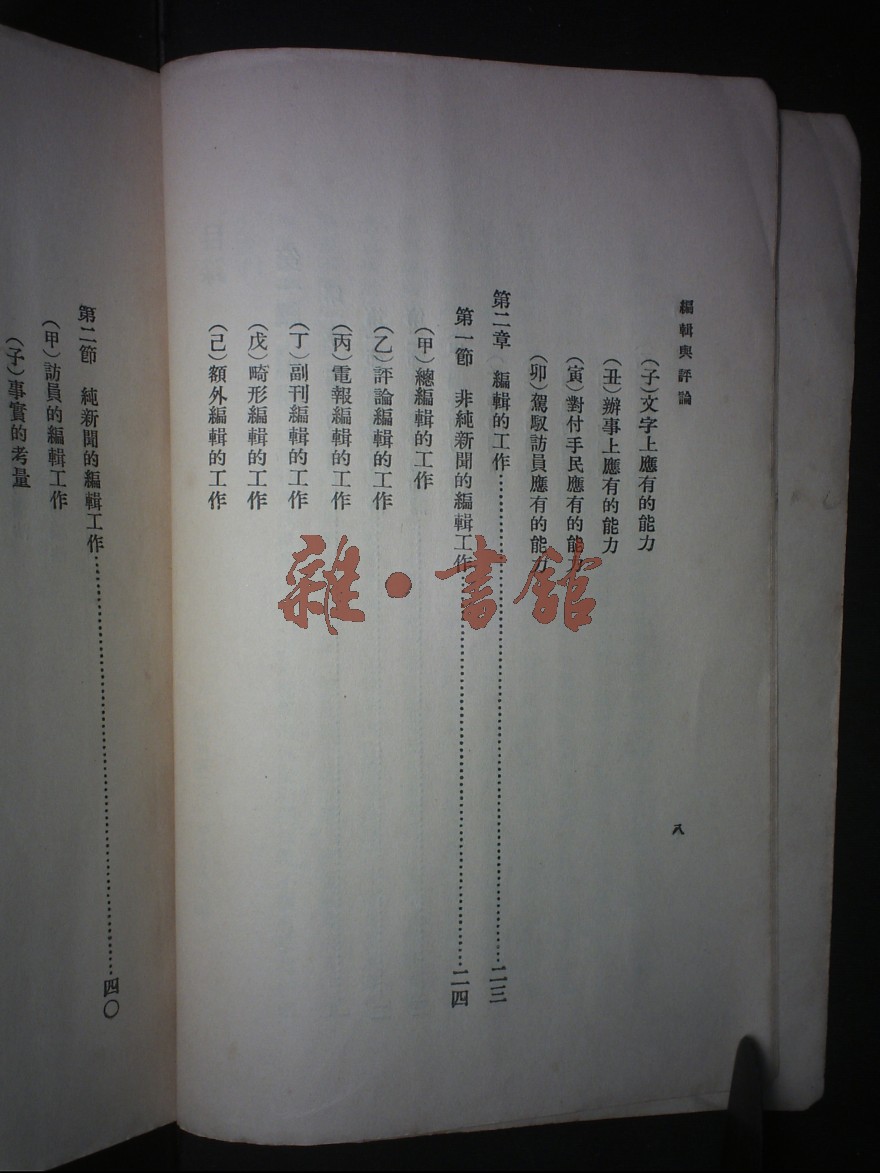 編輯與評論
八
(子)文字上應有的能力
(丑)辦事上應有的能力
(寅)對付手民應有的能力
(卯)駕馭訪員應有的能力
第二章 編輯的工作…………二三
第一節 非純新聞的編輯工作…………二四
(甲)總編輯的工作
(乙)評論編輯的工作
(丙)電報編輯的工作
(丁)副刊編輯的工作
(戊)畸形編輯的工作
(己)額外編輯的工作
第二節 純新聞的編輯工作…………四〇
(甲)訪員的編輯工作
(子)事實的考量
雜·書館